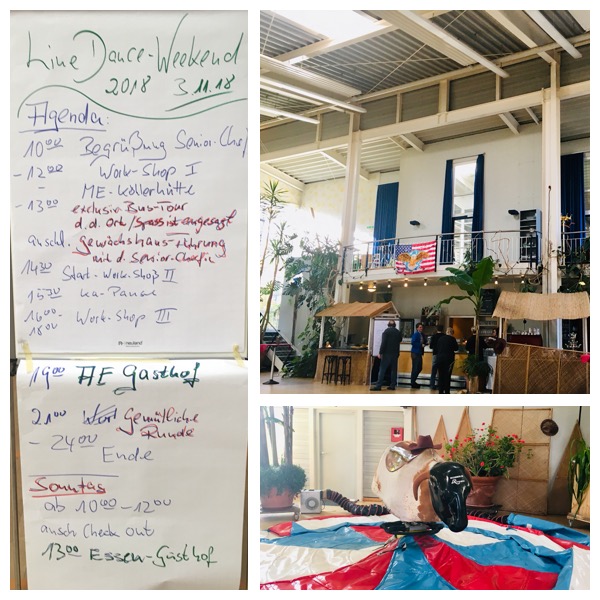 Line Dance-Weekend
2018 3.11.18
Agenda:
10⁰⁰ Begrüßung Senior-Chef
- 12⁰⁰ Work-Shop I
- ME-Köllerhütte
- 13⁰⁰ exclusiv Bus-Tour
d.d. Ort/Spass ist angesagt
anschl. Gewächshaus-Führung
mit d. Senior-Chefin
14³⁰ Start-Work-Shop II
15³⁰ Ka-Pause
16⁰⁰- Work-Shop III
18⁰⁰
neuland
19⁰⁰ AE Gasthof
21⁰⁰ Gemütliche
Runde
- 24⁰⁰
Ende
Sonntag
ab 10⁰⁰-12⁰⁰
ansch Check out
13⁰⁰ Essen-Gasthof